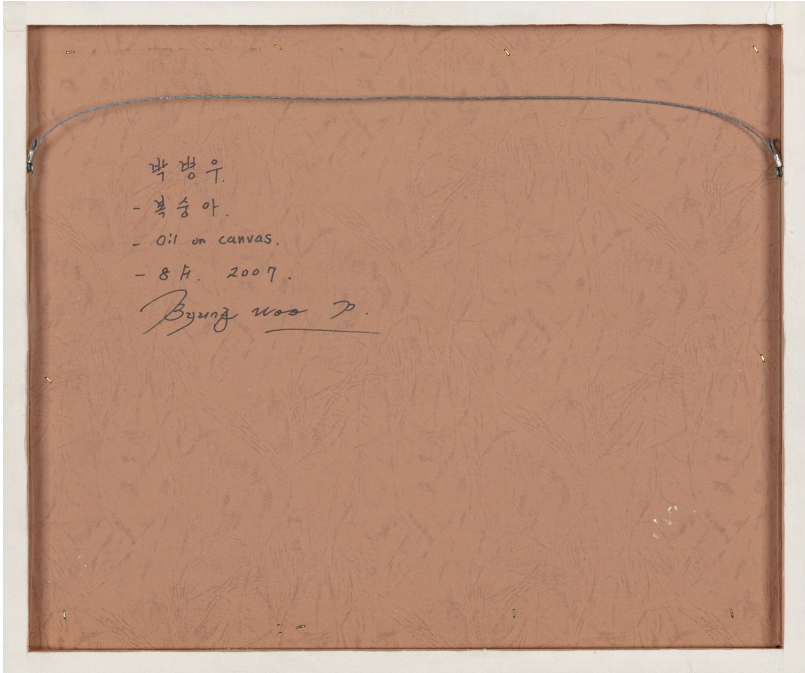 박병우.
- 복숭아.
- Oil on canvas.
- 8호. 2007.
Byung Woo P.